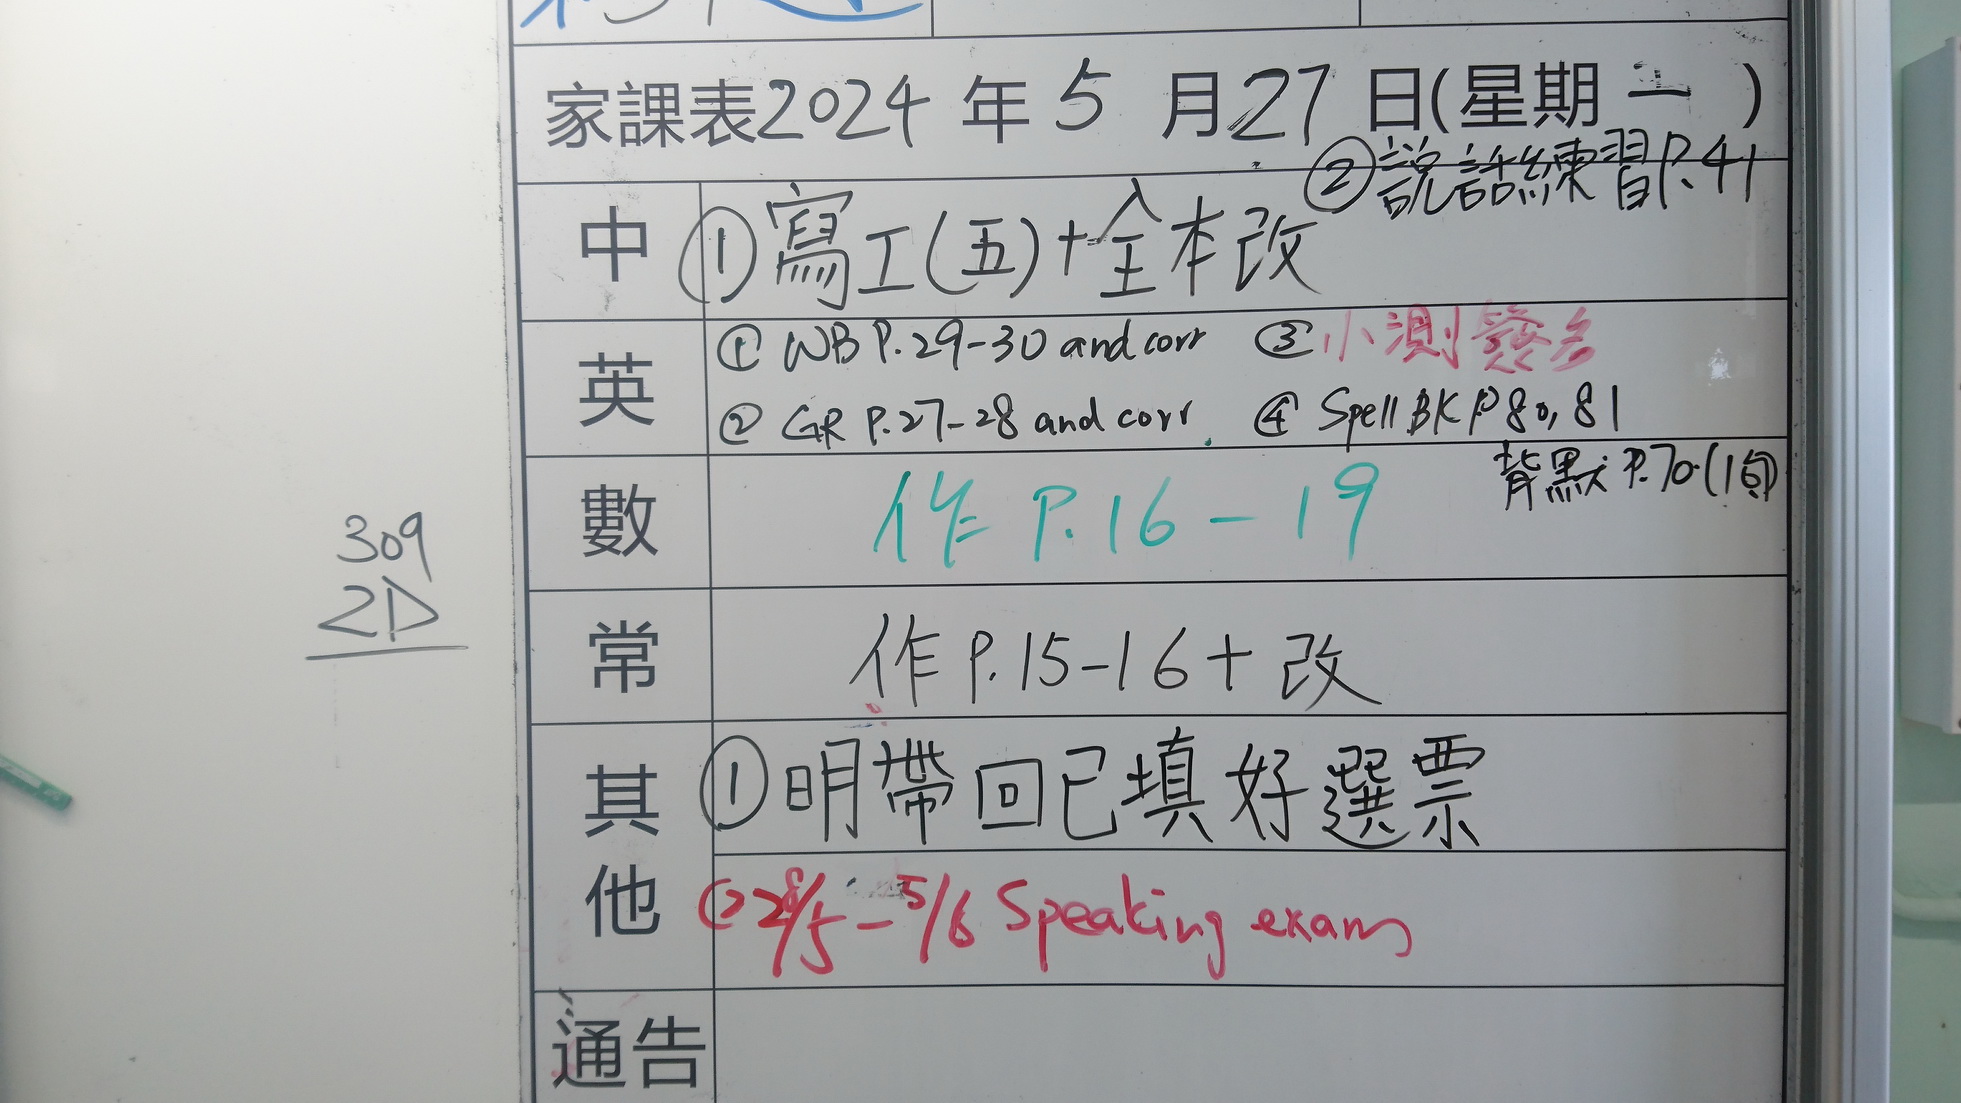 家課表2024年5月27日(星期一)
②説話練習P.41
中 ①寫工(五)+全本改
英 ① WB P.29-30 and corr ③小測簽名
② GR P.27-28 and corr. ④ Spell BK P80,81
背默 P.70(1句)
數 作 P.16-19
309
2D
常 作 P.15-16+改
其他 ①明帶回已填好選票
② 28/5-5/6 Speaking exam
通告